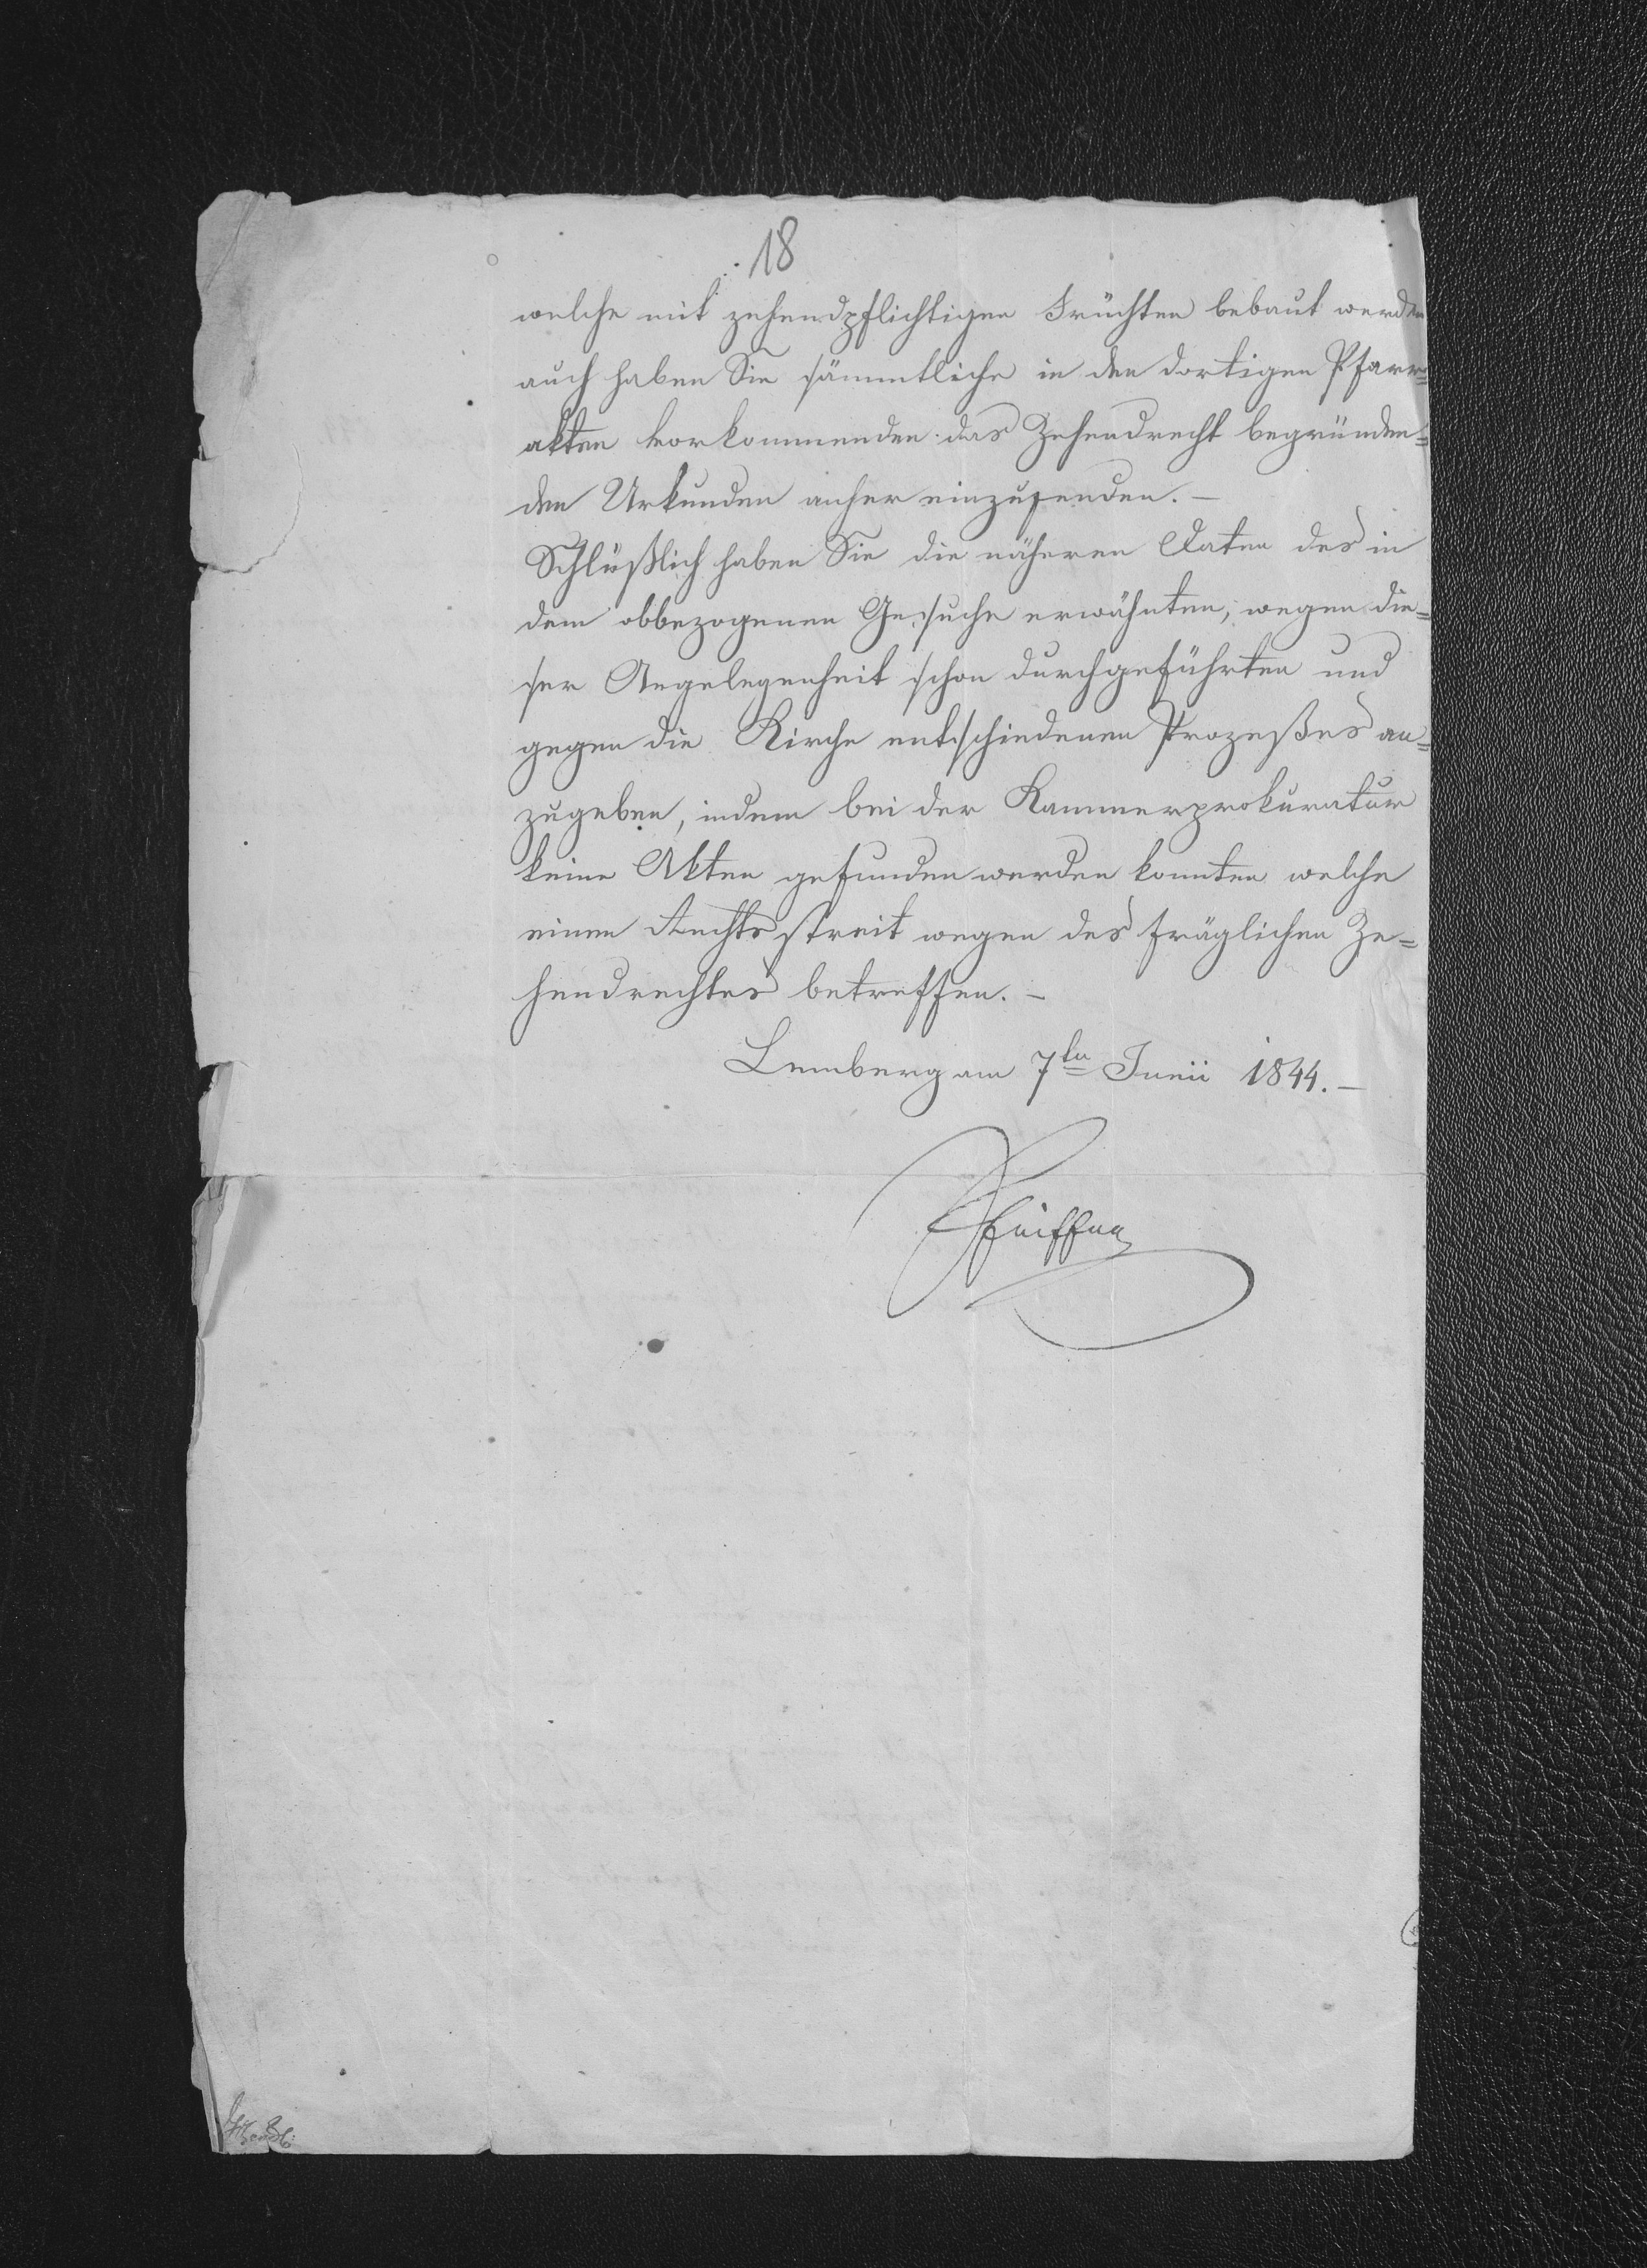 18
welche mit zehendpflichtigen Früchten bebaut werden
auch haben Sie sämmtliche in den dortigen Pfarr=
akten vorkommenden das Zehendrecht begründen=
den Urkunden anher einzusenden. —
Schlüßlich haben Sie die näheren Daten des in
dem obbezogenen Gesuche erwähnten, wegen die=
ser Angelegenheit schon durchgeführten und
gegen die Kirche entschiedenen Prozeßes an=
zugeben, indem bei der Kammerprokuratur
keine Akten gefunden werden konnten welche
einen Rechtsstreit wegen des fräglichen Ze=
hendrechtes betreffen. —
Lemberg am 7ten Junii 1844. —
Pfeiffer